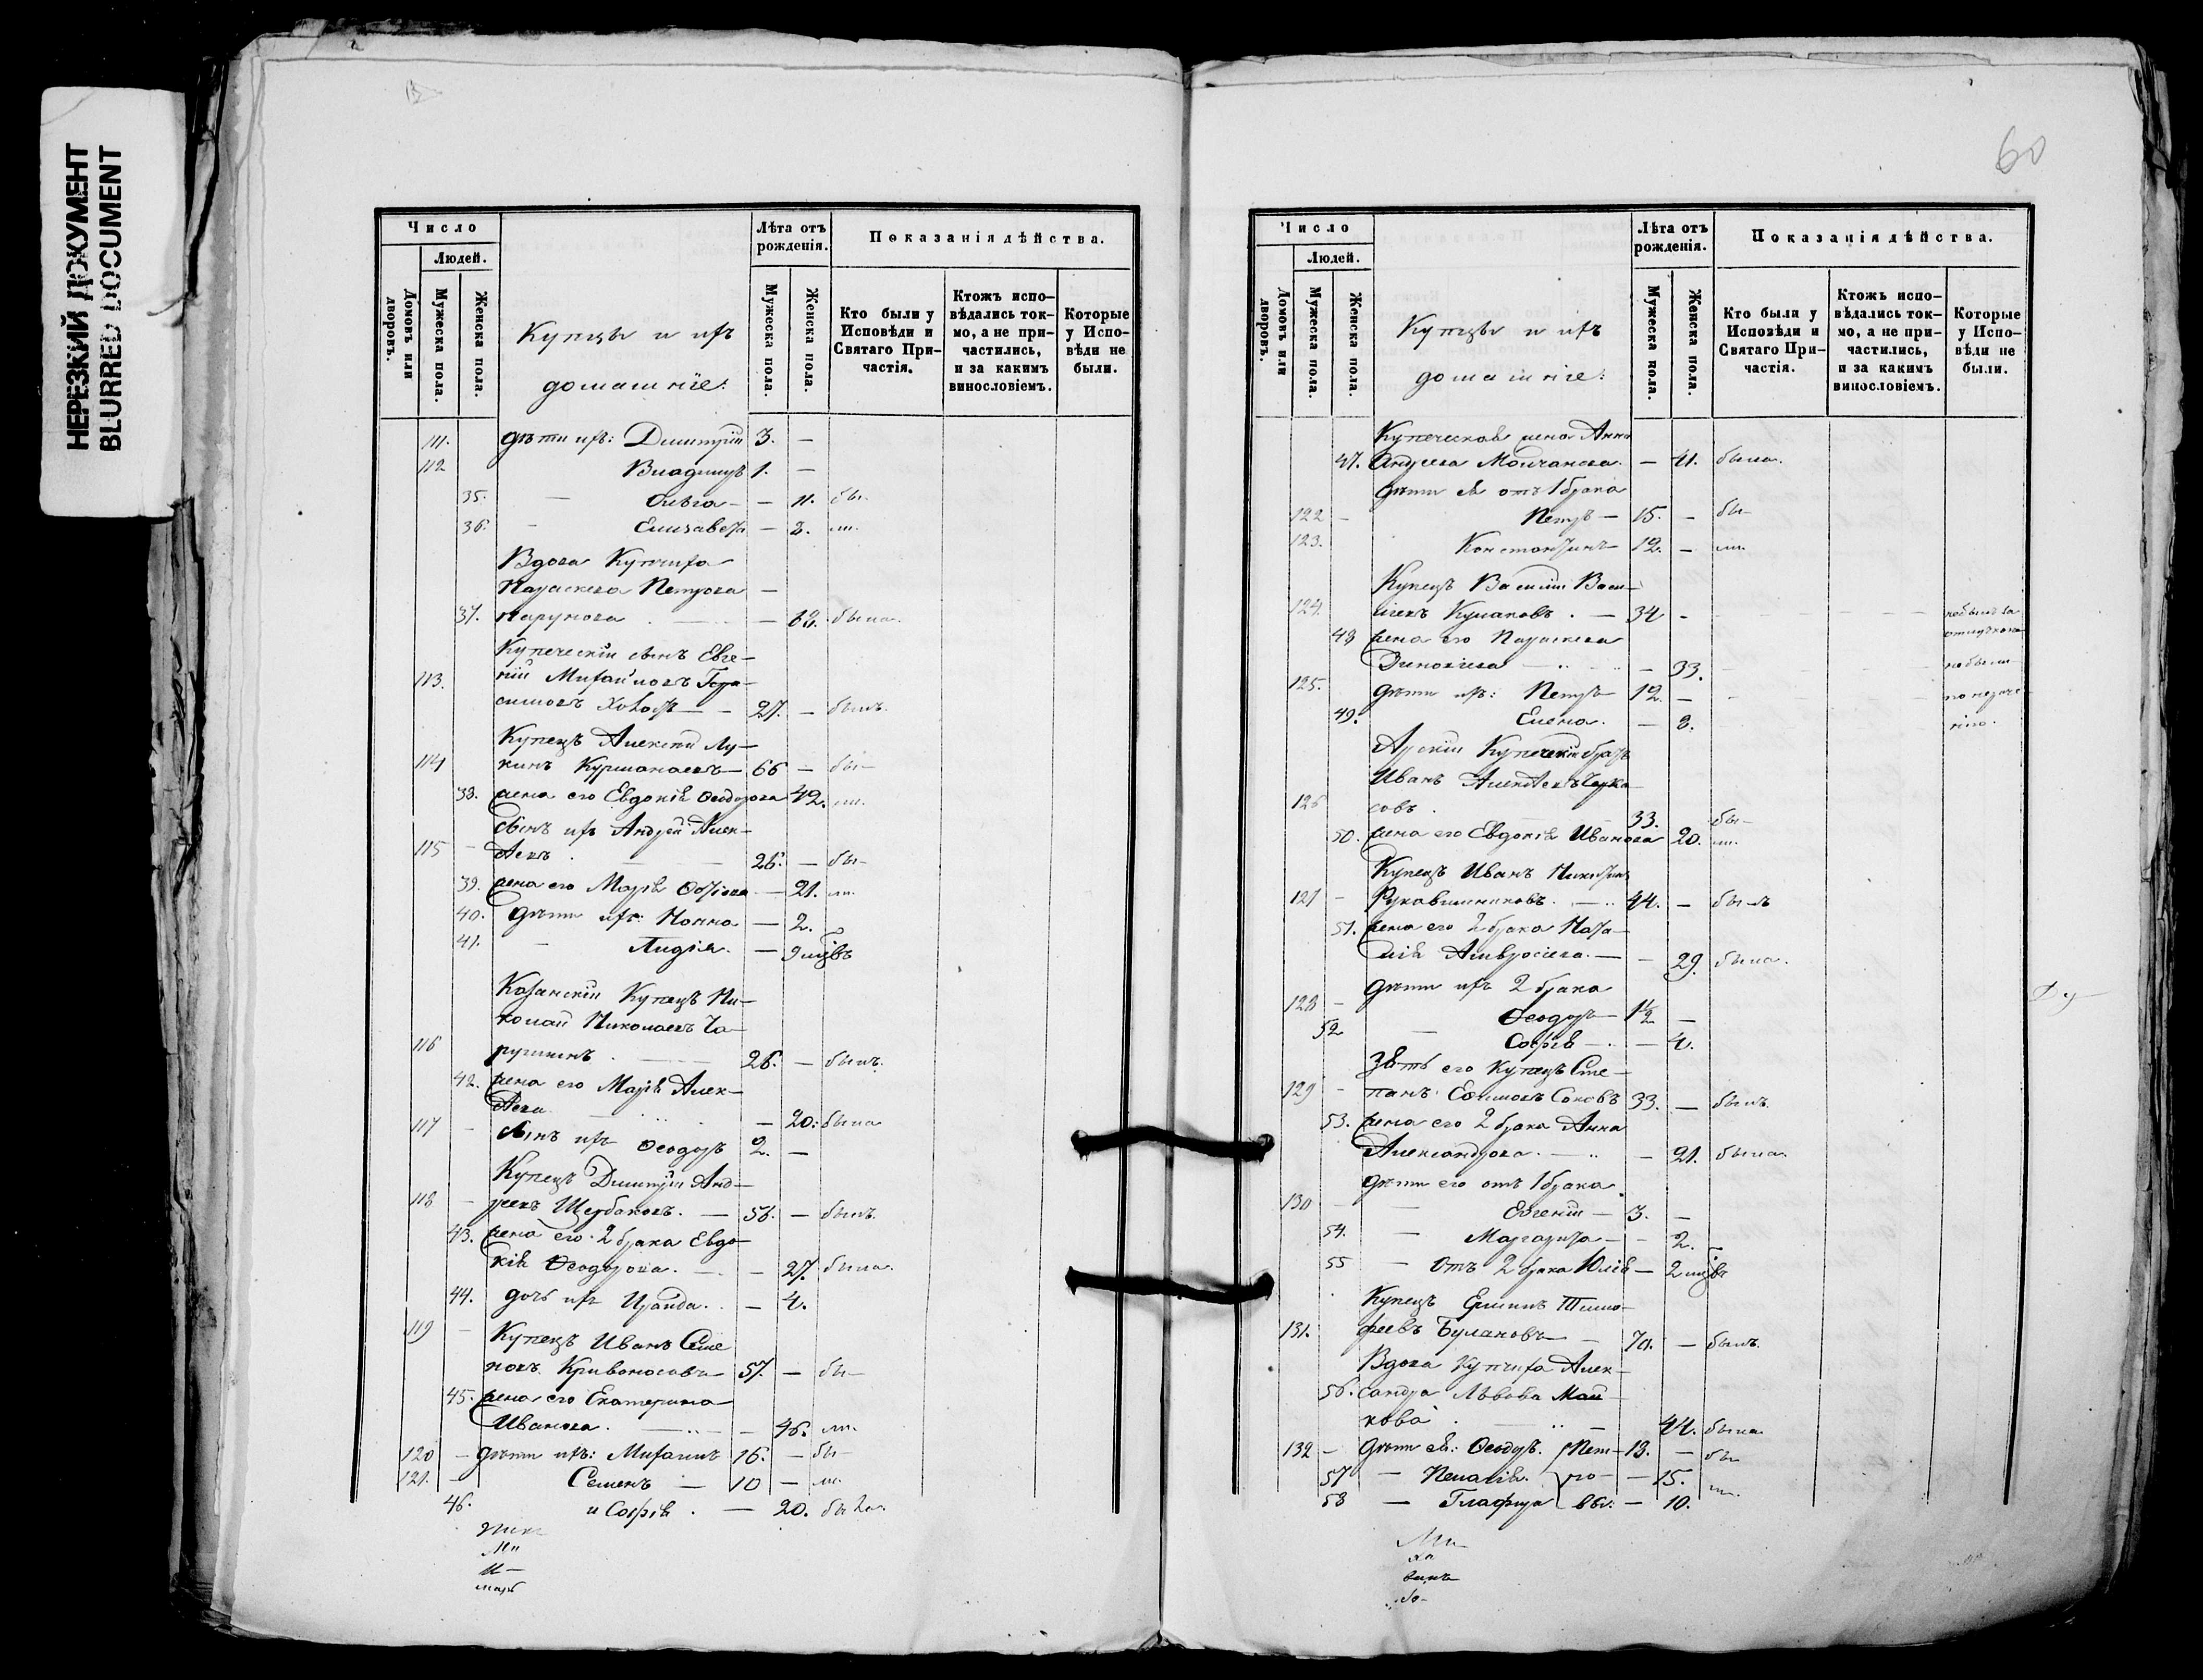 НЕРЕЗКИЙ ДОКУМЕНТ
BLURRED DOCUMENT
Число
Людей.
Домовъ или дворовъ.
Мужеска пола.
Женска пола.
Купцы и ихъ
домашніе:
Лѣта отъ рожденія.
Мужеска пола.
Женска пола.
Показанія дѣйства.
Кто были у Исповѣди и Святаго Причастія.
Ктожъ исповѣдались токмо, а не причастились, и за какимъ винословіемъ.
Которые у Исповѣди не были.
111. дѣти ихъ: Димитрій 3. —
112 Владиміръ 1. —
35. — Ольга — — 11. бы-
36. - Елизавета — 8. ли.
Вдова Купчиха
Параскева Петрова —
37. — 62. была.
Купеческій сынъ Евге-
113. ній Михайловъ
симовъ 27. — былъ.
Купецъ Алексѣй Лу-
114 кинъ Курманаевъ — 66 — бы-
38. жена его Евдокія Ѳеодорова 42. ли.
сынъ ихъ Андрей Алек-
115 — сѣевъ. 26. — бы-
39. жена его Марія — 21. ли.
40. дѣти ихъ: Нонна — 2.
41. - Лидія. — 9 мцвъ
Казанскій Купецъ Ни-
колай Николаевъ Ча-
116 рушинъ. 26. — былъ.
42. жена его Марія Алек-
сѣева — 20: была
117 - сынъ ихъ Ѳеодоръ 2. —
Купецъ Димитрій Анд-
118 — реевъ Щербаковъ. — 56. — былъ.
43. жена его 2 брака Евдо-
кія Ѳеодорова. — 27. была.
44. дочь ихъ Ираида. — 4.
119 — Купецъ Иванъ Семе
новъ Кривоносовъ 57. — бы-
45. жена его Екатерина
Иванова. — 46. ли.
120 — дѣти ихъ: Михаилъ 16. — бы-
121. — Семенъ — 10 — ли.
46. и Софія. — 20. была.
60
Число
Людей.
Домовъ или дворовъ.
Мужеска пола.
Женска пола.
Купцы и ихъ
домашніе:
Лѣта отъ рожденія.
Мужеска пола.
Женска пола.
Показанія дѣйства.
Кто были у Исповѣди и Святаго Причастія.
Ктожъ исповѣдались токмо, а не причастились, и за какимъ винословіемъ.
Которые у Исповѣди не были.
Купеческая жена Анна
47. Андреева Молчанова. — 41. была.
дѣти ея отъ 1 брака
122 — Петръ — 15. — бы-
123. Константинъ 12. — ли.
Купецъ Василій Васи-
124. льевъ Кулаковъ. — 34 - не былъ за
отлучкою
48 жена его Параскева
Зиновіева — 33. не были
125. дѣти ихъ: Петръ 12. — по нераде-
49. Елена. — 8. нію.
Арскій Купеческій братъ
Иванъ Алексѣевъ Черка-
126 совъ. 33. бы-
50. жена его Евдокія Иванова 20. ли.
Купецъ Иванъ Никитинъ
127 — Рукавишниковъ. 44. — былъ
51. жена его 2 брака Ната-
лія Амвросіева. — - 29. была.
дѣти ихъ 2 брака
128 — Ѳеодоръ 1½ —
52 — Софія — — 4.
Зять его Купецъ Сте-
129 — панъ Соковъ 33. — былъ.
53. жена его 2 брака Анна
Александрова. — 21. была.
дѣти его отъ 1 брака
130 — Евгеній — 3. —
54. — Маргарита — 2.
55 — Отъ 2 брака Юлія — 2 мцвъ
Купецъ Тимо-
131. феевъ Булановъ — 70. — былъ.
Вдова Купчиха Алек-
56. сандра Львова Май-
кова. — 44. была
132 — дѣти ея: Ѳеодоръ. Пет- 13. — бы
57 — Пелагія. ро- — 15. ли.
58 — Глафира вы: — 10.